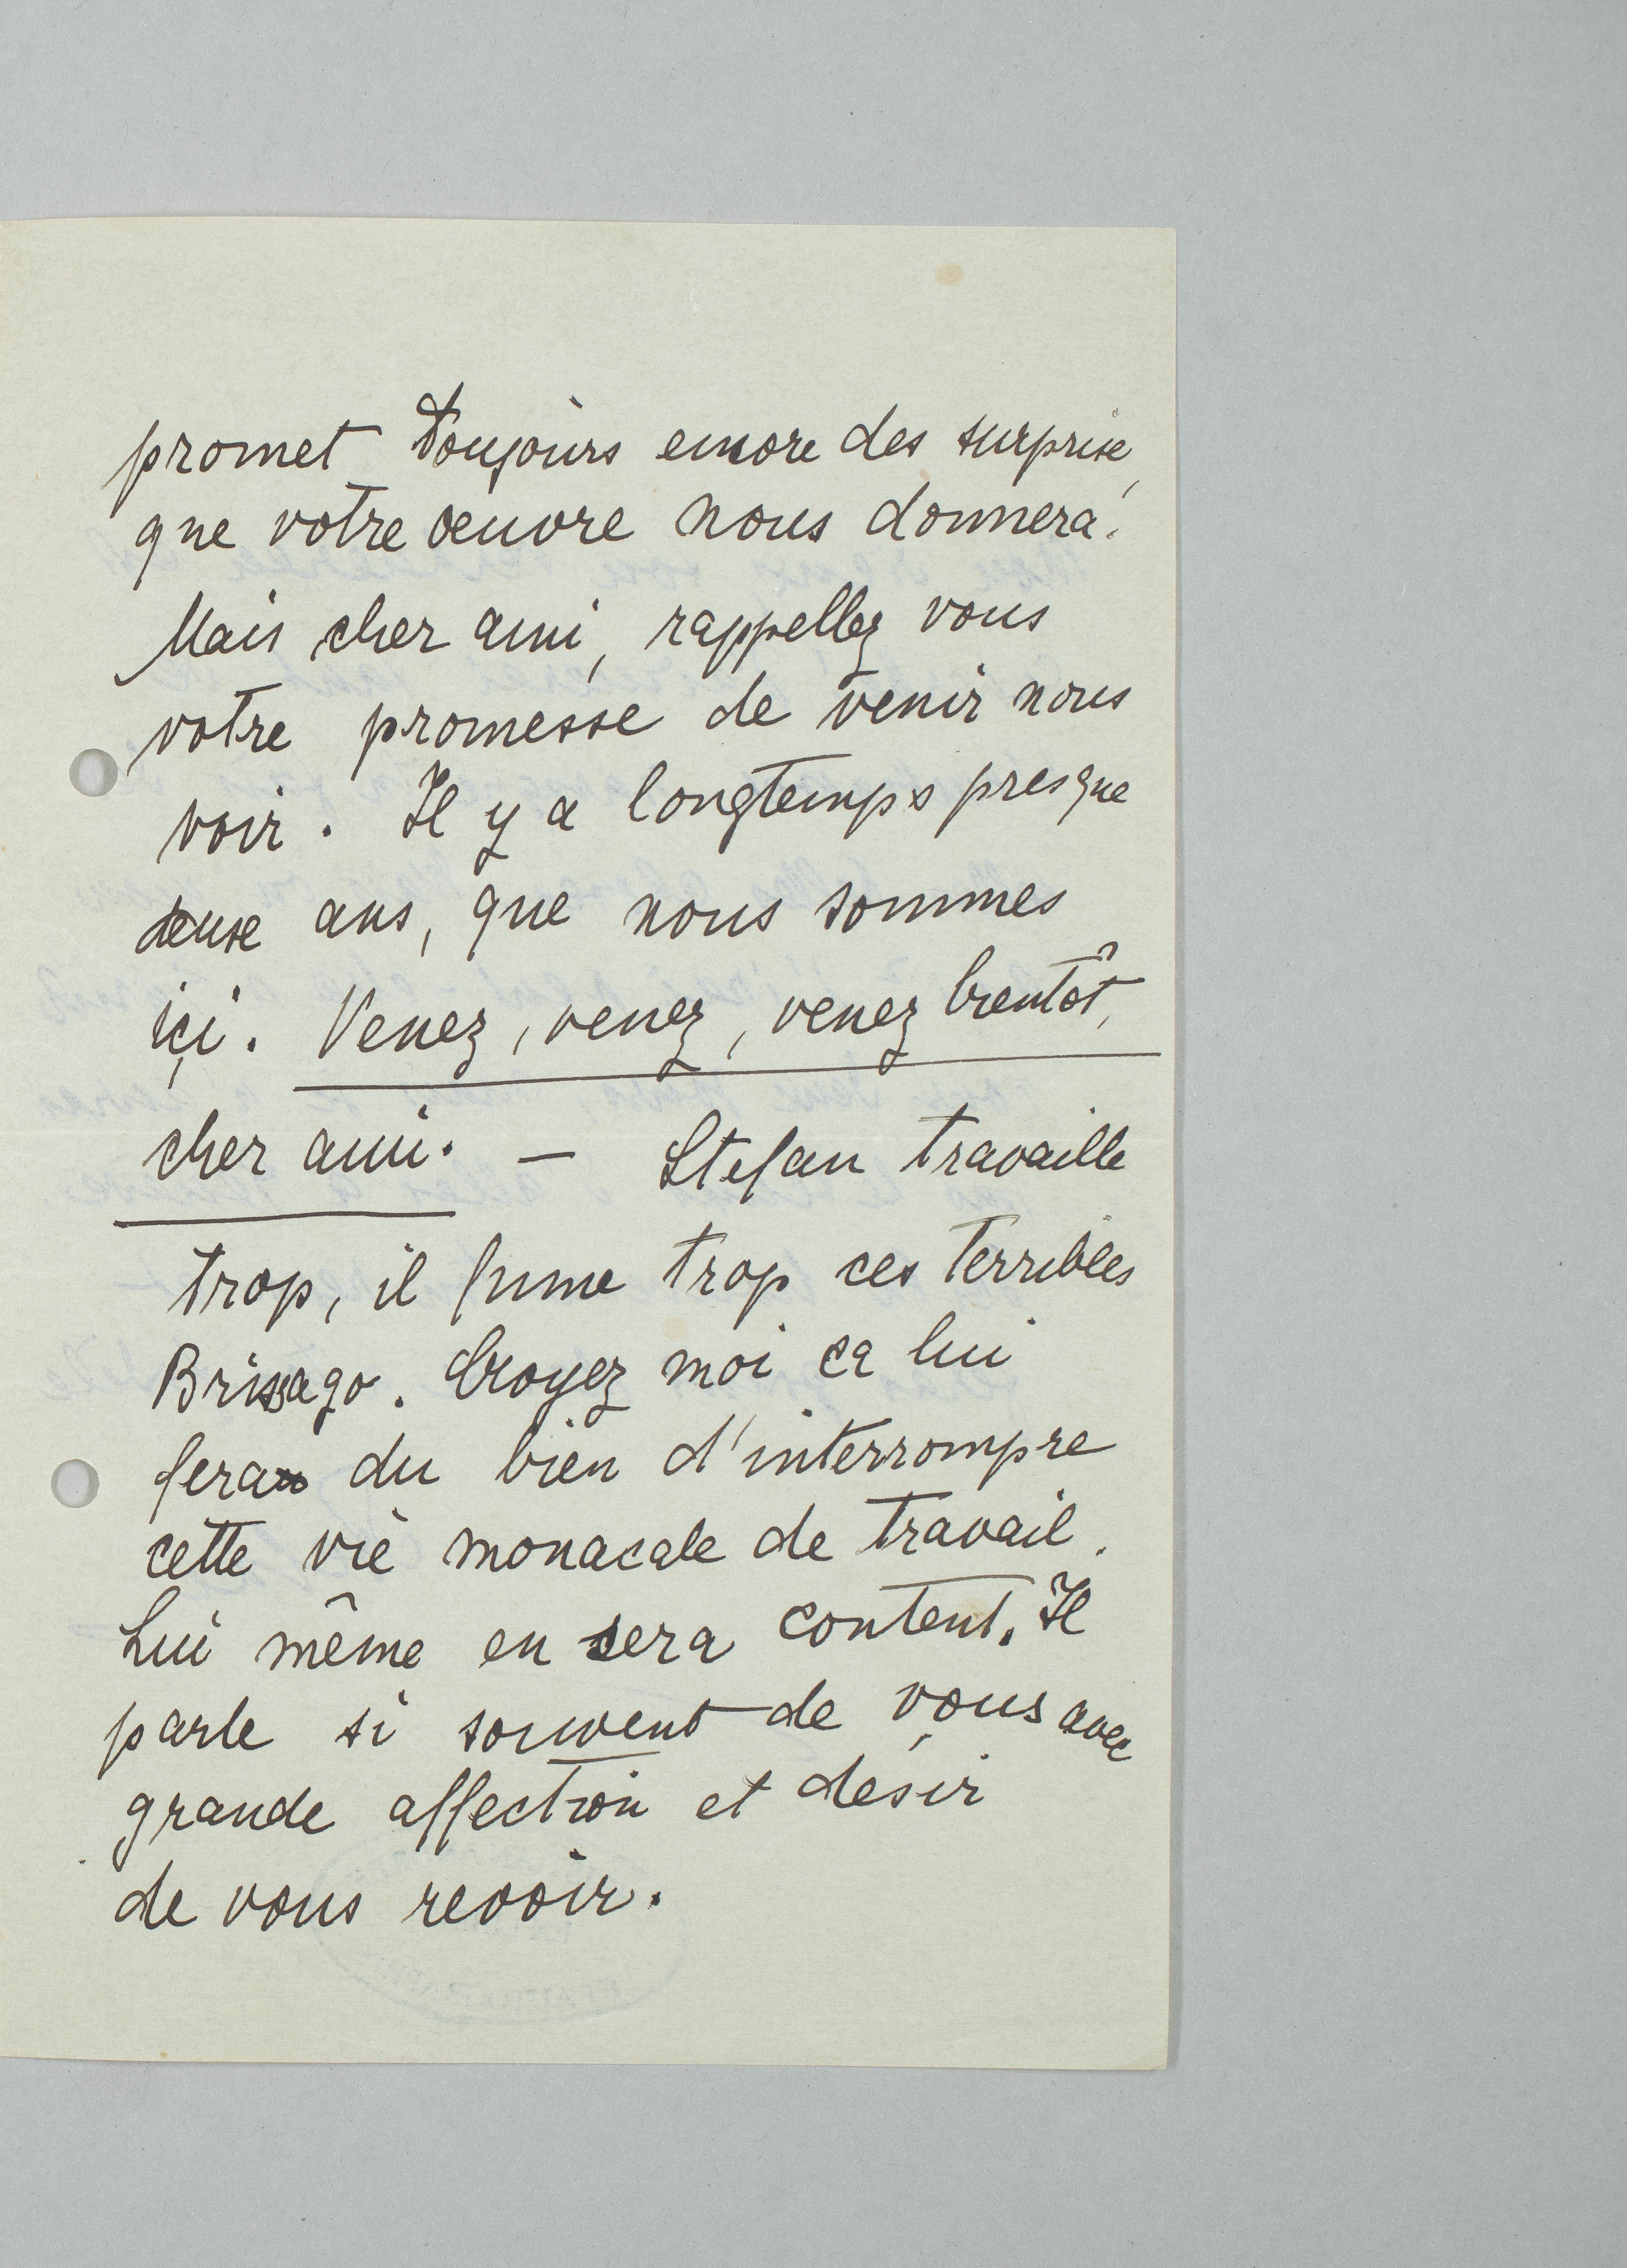 promet toujours encore des surprise,
que votre oeuvre nous donnera.
Mais cher ami, rappellez vous
votre promesse de venir nous
voir. Il y a longtemps presque
deuse ans, que nous sommes
içi. Venez, venez, venez bientôt,
cher ami. — Stefan travaille
trop, il fume trop ces terribles
Brissago. Croyez moi ca lui
fera du bien d'interrompre
cette vie monacale de travail.
Lui même en sera content. Il
parle si souvent de vous avec
grande affection et désir
de vous revoir.